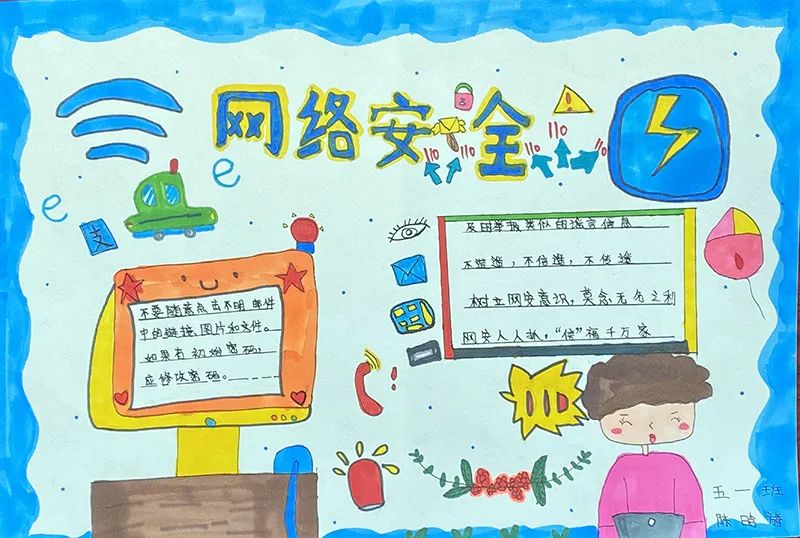 网络安全
110 110 110 110
e
e
支
不要随意点击不明邮件
中的链接、图片和文件。
如果有初始密码，
应修改密码。
及时举报类似的谣言信息
不造谣，不信谣，不传谣
树立网安意识，莫念无名之利
网安人人抓，“信”福千万家
五一班
陈晗